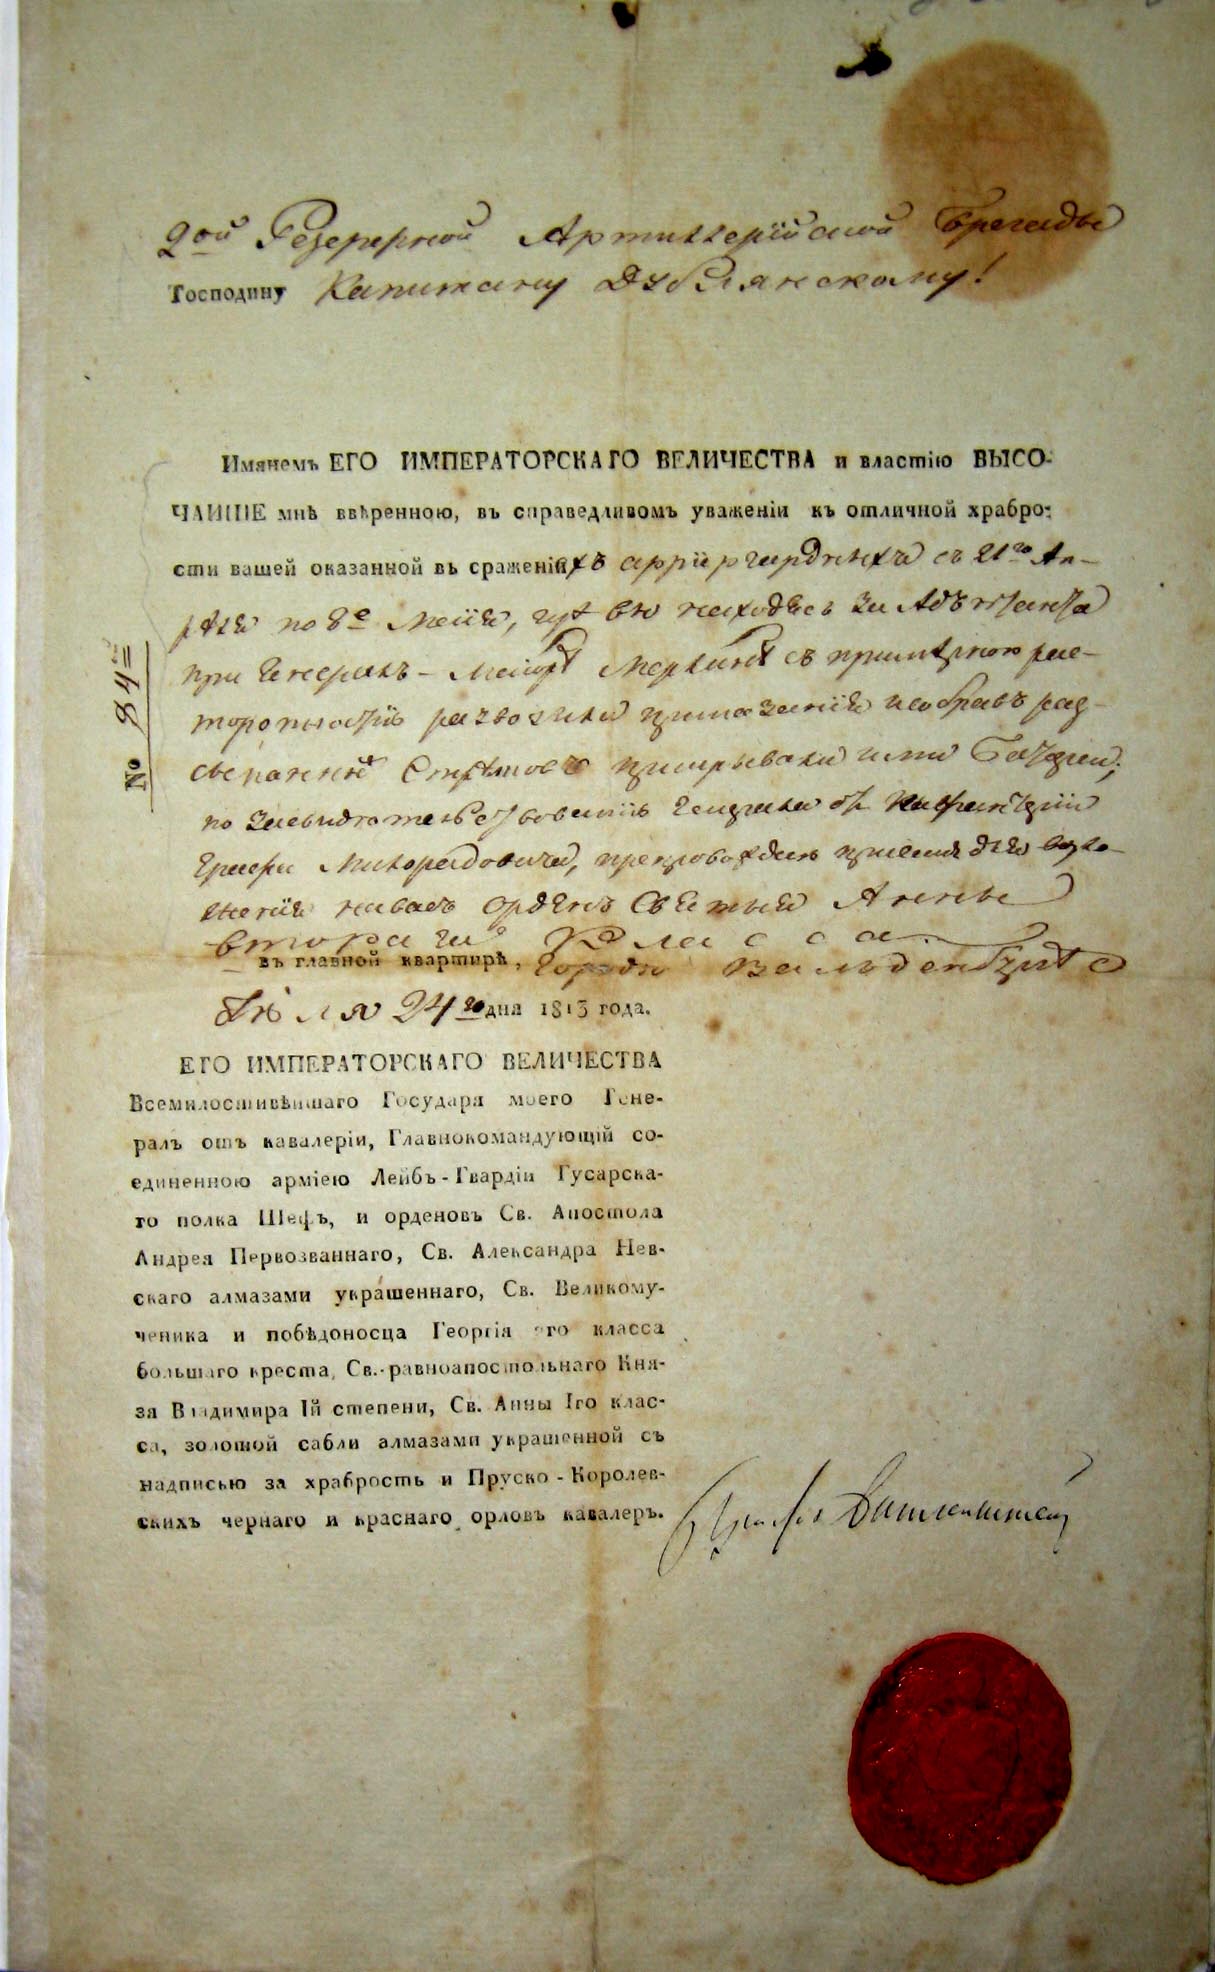 2ой Резервной Артиллерійской Брегады
Господину Капитану Дублянскому!
Имянемъ ЕГО ИМПЕРАТОРСКАГО ВЕЛИЧЕСТВА и властію ВЫСО-
ЧАЙШЕ мнѣ ввѣренною, въ справедливомъ уваженіи къ отличной храбро-
сти вашей оказанной въ сраженіяхъ аррііргардныхъ съ 21го Ап-
рѣля по 8е Маія, гдѣ вы находясь за Адъютанта
при Генералъ-Маіорѣ съ примѣрною рас-
торопностію развозили приказанія и собравъ раз-
сыпанныхъ Стрѣлковъ прикрывали ими Батареи;
по засвидѣтельствованію Генерала отъ Инфантеріи
Графа Милорадовича, препровождаю при семъ для возло-
женія на васъ орденъ Святыя Анны
втораго Класса.
въ главной квартирѣ, городъ Вальденбургъ
Іюля 24го дня 1813 года.
№ 84
ЕГО ИМПЕРАТОРСКАГО ВЕЛИЧЕСТВА
Всемилостивѣйшаго Государя моего Гене-
ралъ отъ кавалеріи, Главнокомандующій со-
единенною арміею Лейбъ-Гвардіи Гусарска-
го полка Шефъ, и орденовъ Св. Апостола
Андрея Первозваннаго, Св. Александра Нев-
скаго алмазами украшеннаго, Св. Великому-
ченика и побѣдоносца Георгія го класса
большаго креста, Св. равноапостольнаго Кня-
зя Владимира Iй степени, Св. Анны Iго клас-
са, золотой сабли алмазами украшенной съ
надписью за храбрость и Пруско-Королев-
скихъ чернаго и краснаго орловъ кавалеръ.
Графъ Витгенштейн